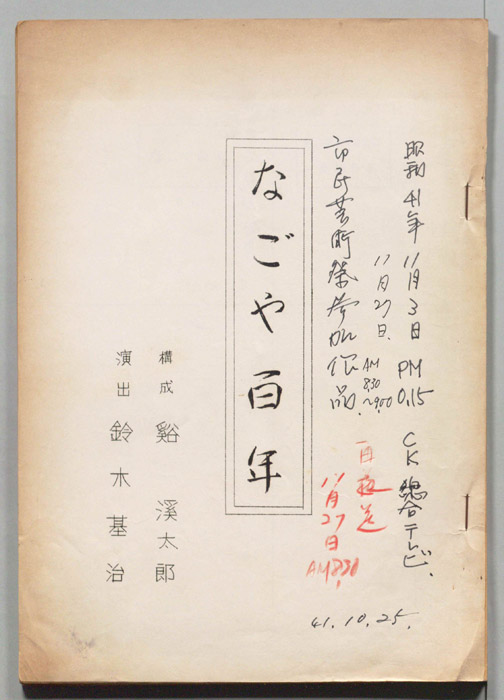 昭和41年11月3日 PM 0.15 CK 総合テレビ.
11月27日. AM 8.30 〜9.00
市民芸術祭参加作品
再放送
11月27日 AM 8.30
なごや百年
構成 谿 渓太郎
演出 鈴木基治
41.10.25.